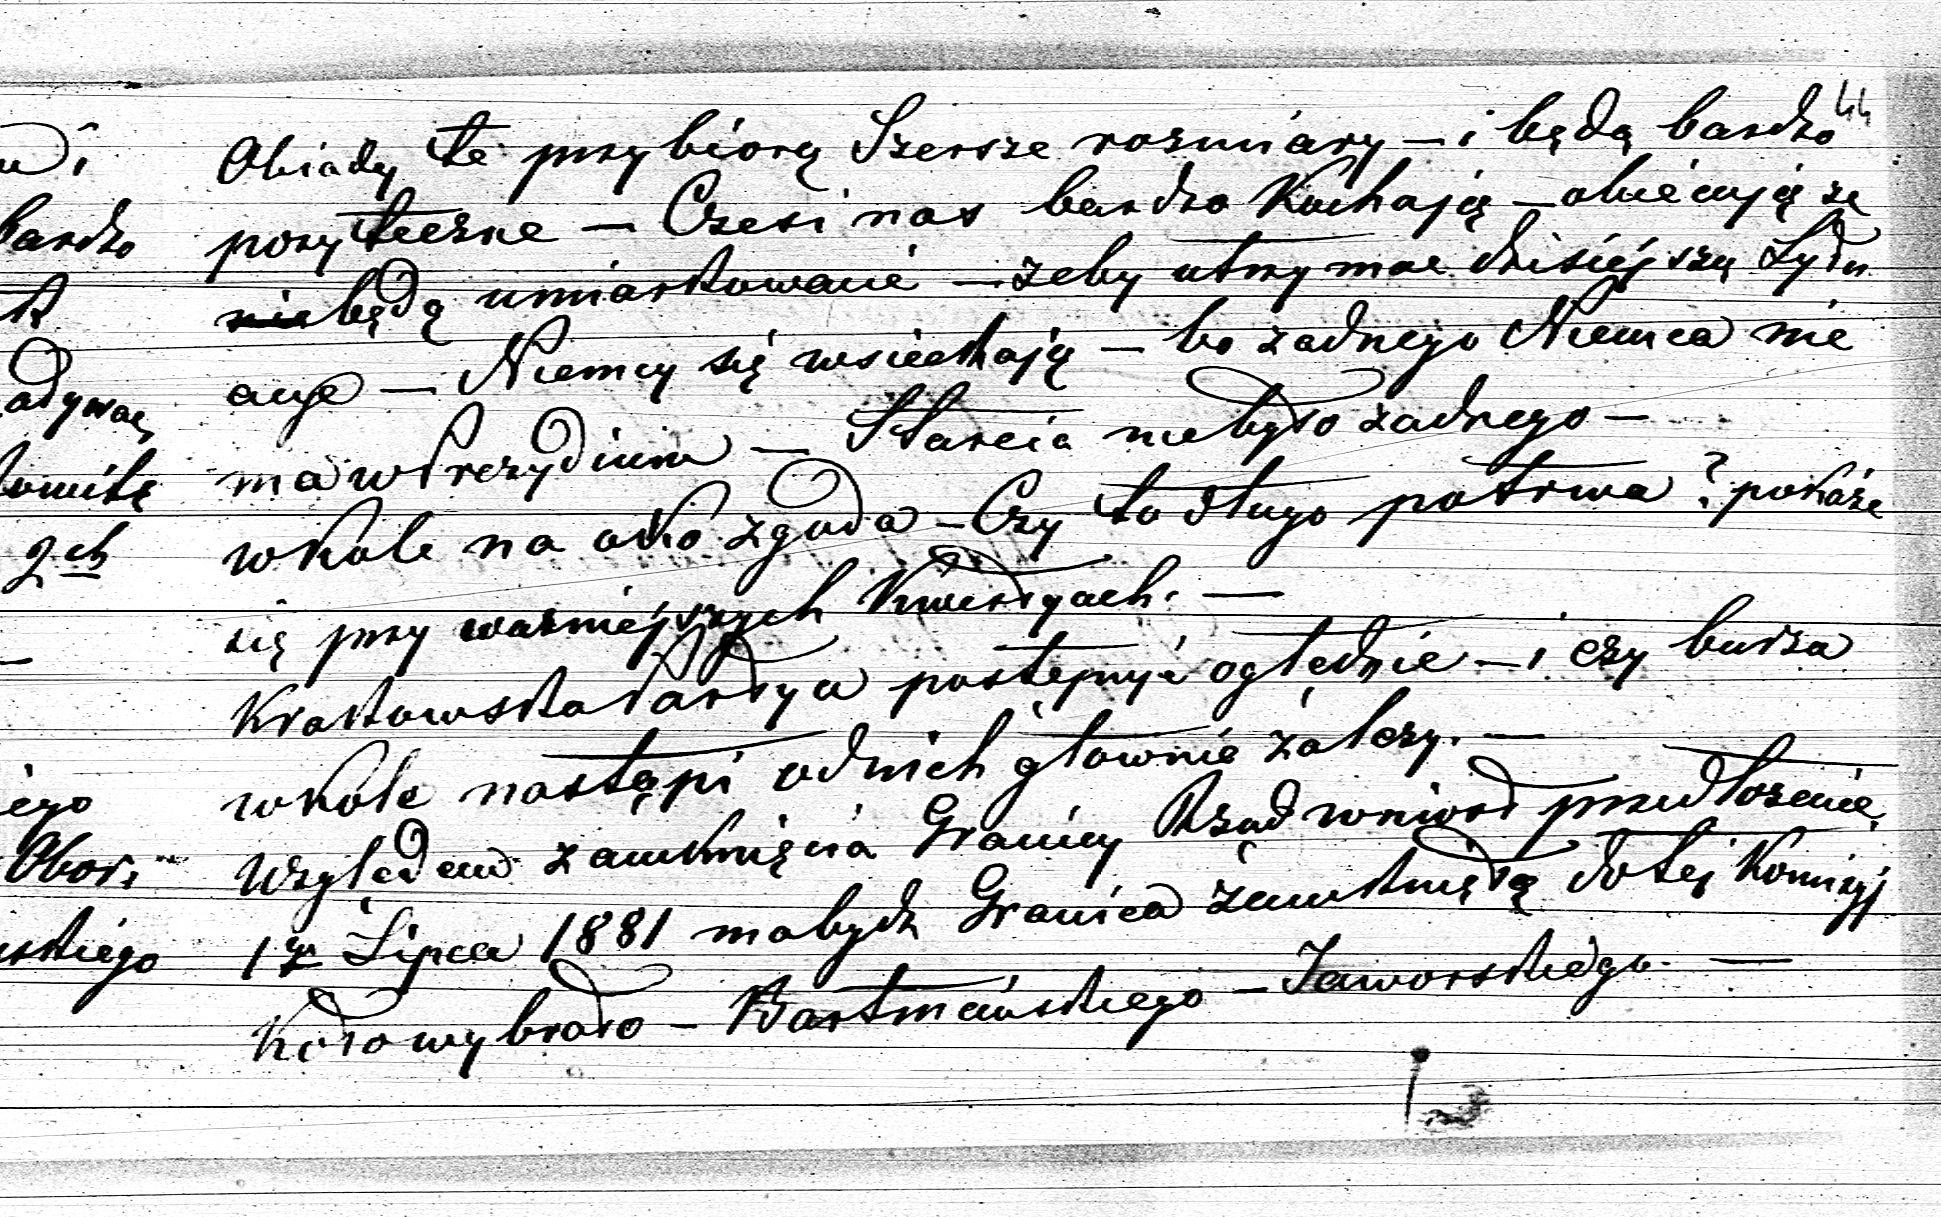 44
Obiady te przybiorą Szersze rozmiary – i będą bardzo
pozyteczne – Czesi nas bardzo Kochają – obiecują ze
będą umiarkowanie – zeby utrzymac dzisiejszą Sytu
acye – Niemcy się wsciekają – bo zadnego Niemca nie
ma w Prezydium – Starcia niebyło zadnego –
w Kole na oko zgoda – Czy to długo potrwa? pokáże
się przy wazniejszych Kwestyach. –
Krakowska Partya postępuje oględnie – i czy burza
w Kole nastąpi od nich głownie zalezy. –
Względem zamknięcia Granicy Rząd wniosł przedłozenie
1go Lipca 1881 ma bydz Granica zamkniętą do tej Komisyj
Koło wybrało – Bartmańskiego – Jaworskiego. –
bardzo
2ch
iego
skiego